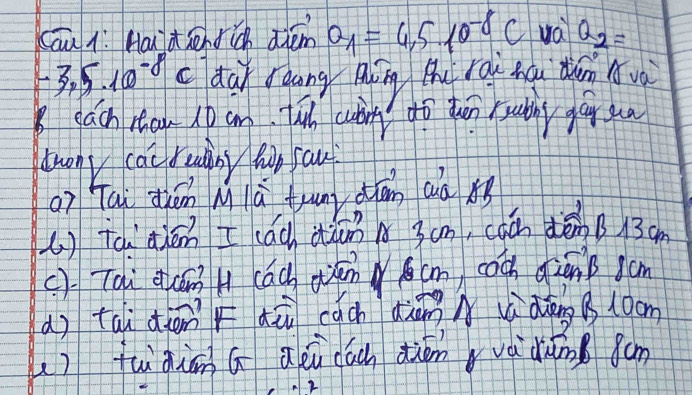 Câu 1: Hai điện tích điểm Q1 = 4,5.10^-8 C và Q2 =
-3,5.10^-8 C đặt trong không khí tại hai điểm A và
B cách nhau 10 cm. Tính cường độ điện trường gây ra
trong các trường hợp sau:
a) Tại điểm M là trung điểm của AB
b) Tại điểm I cách điểm A 3 cm, cách điểm B 13 cm
c) Tại điểm H cách điểm A 6 cm, cách điểm B 8 cm
d) tại điểm F đều cách điểm A và điểm B 10 cm
e) tại điểm G đều cách điểm A và điểm B 8 cm